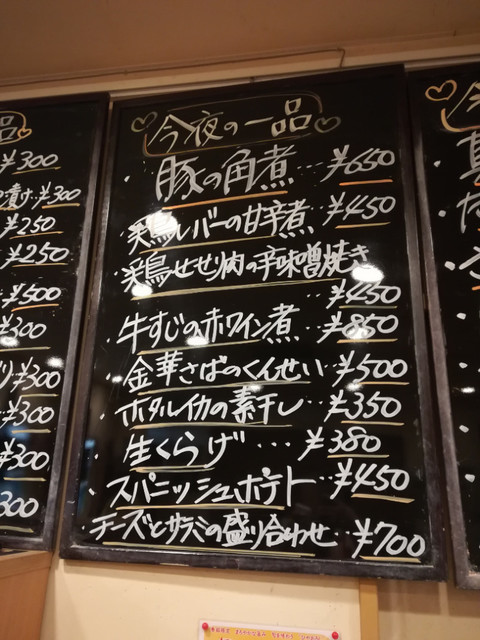 品
¥300
漬け ¥300
¥250
¥250
¥500
¥300
¥300
¥300
¥300
300
今夜の一品
豚の角煮…¥650
・鶏レバーの甘辛煮 ¥450
・鶏せせり肉の辛味噌焼き
¥450
・牛すじの赤ワイン煮…¥850
・金華さばのくんせい…¥500
・ホタルイカの素干し…¥350
・生くらげ…¥380
・スパニッシュポテト…¥450
・チーズとサラミの盛り合わせ…¥700